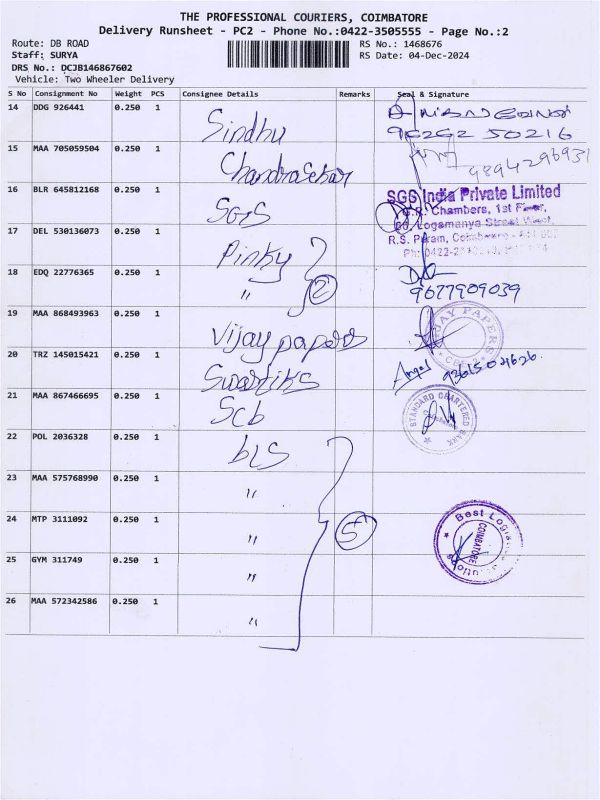 THE PROFESSIONAL COURIERS, COIMBATORE
Delivery Runsheet - PC2 - Phone No.:0422-3505555 - Page No.:2
Route: DB ROAD RS No.: 1468676
Staff: SURYA RS Date: 04-Dec-2024
DRS No.: DCJB146867602
Vehicle: Two Wheeler Delivery
S No Consignment No Weight PCS Consignee Details Remarks Seal & Signature
14 DDG 926441 0.250 1 Sindhu
15 MAA 705059504 0.250 1 Chandrasekar 9894296931
16 BLR 645812168 0.250 1 SGS
SGS India Private Limited
Chambers, 1st Floor,
Logamanya Street West,
R.S. Puram,
17 DEL 530136073 0.250 1 Pinky
18 EDQ 22776365 0.250 1 " 2 9677909039
19 MAA 868493963 0.250 1 Vijay papers
VIJAY PAPERS
20 TRZ 145015421 0.250 1 Swastiks
21 MAA 867466695 0.250 1 Scb
STANDARD CHARTERED BANK
22 POL 2036328 0.250 1 bLS
23 MAA 575768990 0.250 1 "
24 MTP 3111092 0.250 1 " 5
Best
COIMBATORE
25 GYM 311749 0.250 1 "
26 MAA 572342586 0.250 1 "